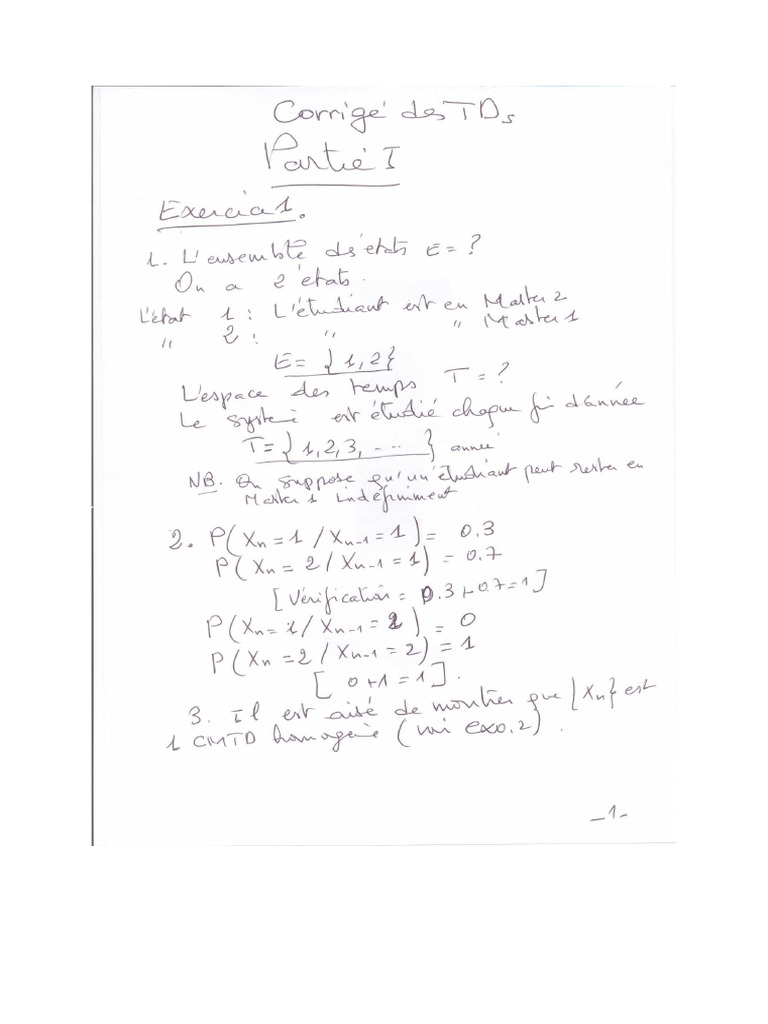 Corrigé des TDs
Partie I
Exercice 1.
1. L'ensemble des états E = ?
On a 2 états.
L'état 1 : L'étudiant est en Master 2
" 2 : " " Master 1
E = {1, 2}
L'espace des temps T = ?
Le système est étudié chaque fin d'année
T = {1, 2, 3, ... } année
NB. On suppose qu'un étudiant peut rester en
Master 1 indéfiniment
2. P(Xn = 1 / Xn-1 = 1) = 0.3
P(Xn = 2 / Xn-1 = 1) = 0.7
[Vérification = 0.3 + 0.7 = 1]
P(Xn = 1 / Xn-1 = 2) = 0
P(Xn = 2 / Xn-1 = 2) = 1
[0 + 1 = 1].
3. Il est aisé de montrer que {Xn} est
1 CMTD homogène (voir exo.2).
-1-